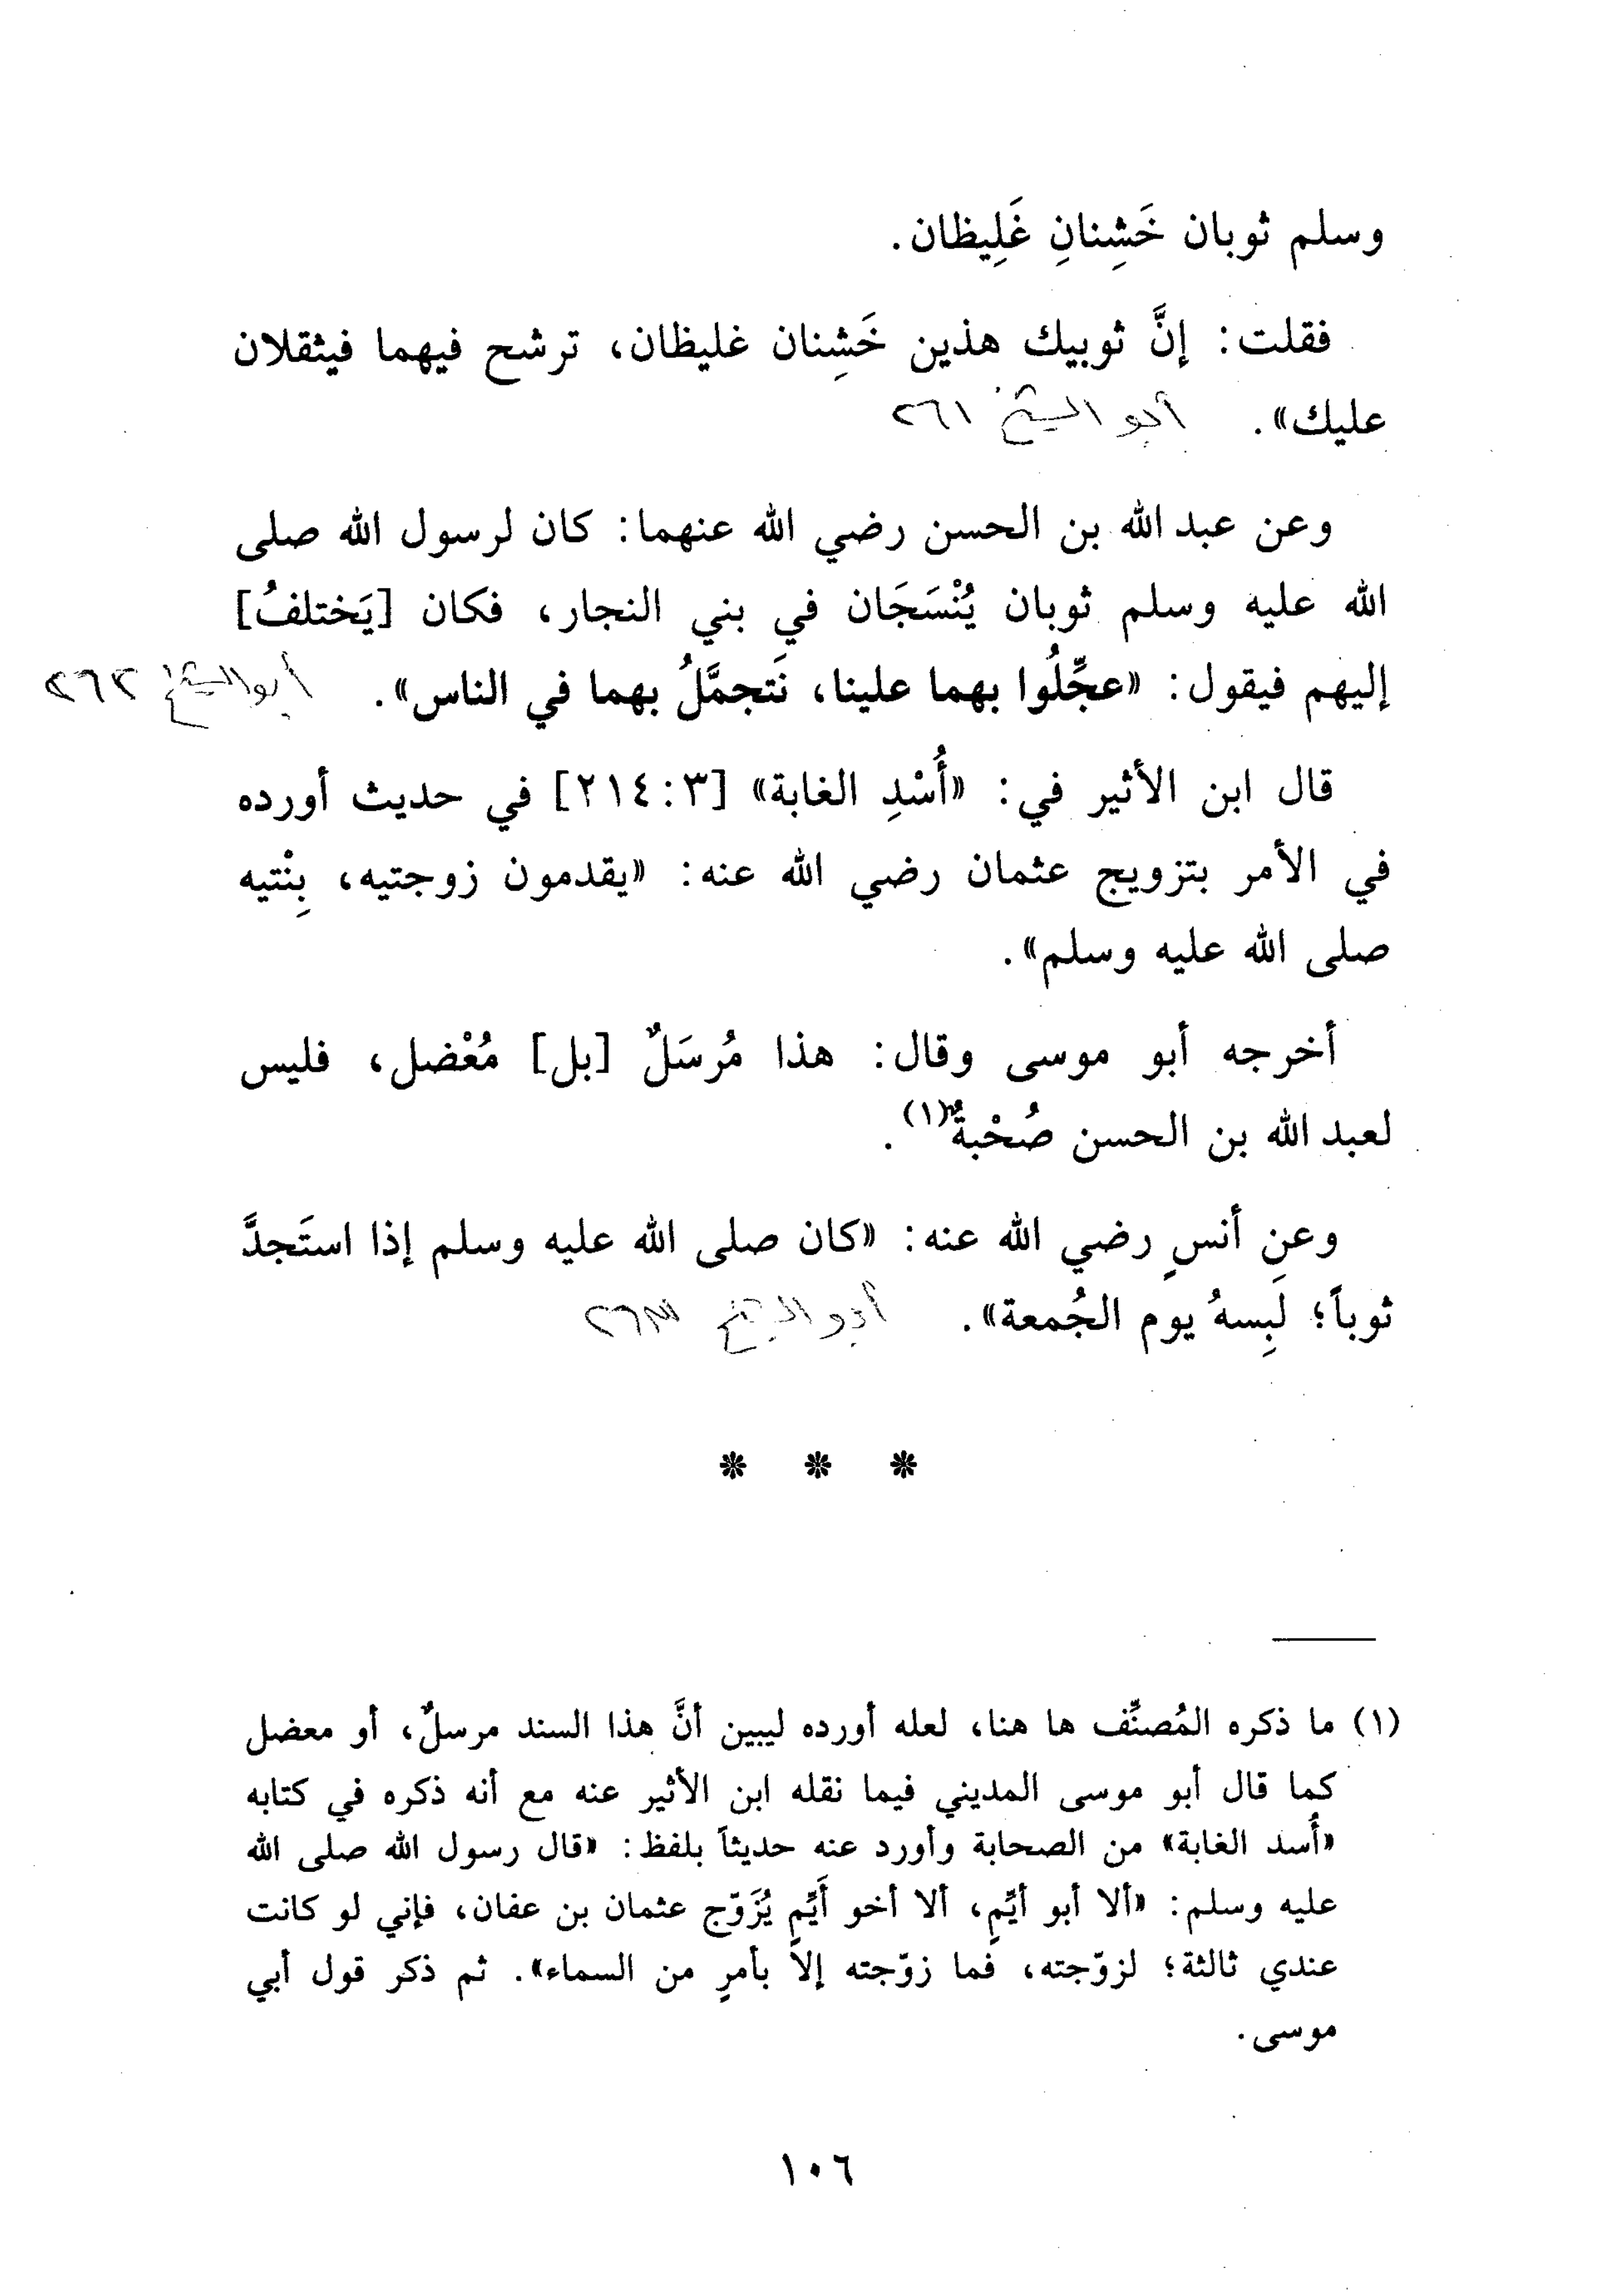 وسلم ثوبان خَشِنانِ غَلِيظان.
فقلت: إنَّ ثوبيك هذين خَشِنان غليظان، ترشح فيهما فيثقلان
عليك». أبو الشيخ ٢٦١
وعن عبد الله بن الحسن رضي الله عنهما: كان لرسول الله صلى
الله عليه وسلم ثوبان يُنْسَجَان في بني النجار، فكان [يَختلفُ]
إليهم فيقول: «عجِّلُوا بهما علينا، نَتجمَّلُ بهما في الناس». أبو الشيخ ٢٦٢
قال ابن الأثير في: «أُسْدِ الغابة» [٣: ٢١٤] في حديث أورده
في الأمر بتزويج عثمان رضي الله عنه: «يقدمون زوجتيه، بِنْتيه
صلى الله عليه وسلم».
أخرجه أبو موسى وقال: هذا مُرسَلٌ [بل] مُعْضل، فليس
لعبد الله بن الحسن صُحْبةٌ(١).
وعن أنسٍ رضي الله عنه: «كان صلى الله عليه وسلم إذا استَجدَّ
ثوباً؛ لَبِسهُ يوم الجُمعة». أبو الشيخ ٢٦٣
* * *
(١) ما ذكره المُصنِّف ها هنا، لعله أورده ليبين أنَّ هذا السند مرسلٌ، أو معضل
كما قال أبو موسى المديني فيما نقله ابن الأثير عنه مع أنه ذكره في كتابه
«أُسد الغابة» من الصحابة وأورد عنه حديثاً بلفظ: «قال رسول الله صلى الله
عليه وسلم: «ألا أبو أيِّمٍ، ألا أخو أَيِّمٍ يُزَوّج عثمان بن عفان، فإني لو كانت
عندي ثالثة؛ لزوّجته، فما زوّجته إلاَّ بأمرٍ من السماء». ثم ذكر قول أبي
موسى.
١٠٦